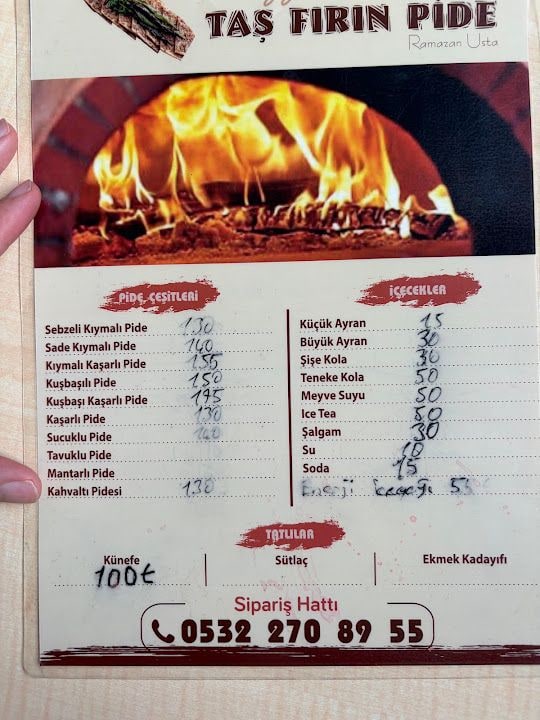 TAŞ FIRIN PİDE
Ramazan Usta
PİDE ÇEŞİTLERİ
Sebzeli Kıymalı Pide 130
Sade Kıymalı Pide 140
Kıymalı Kaşarlı Pide 155
Kuşbaşılı Pide 150
Kuşbaşı Kaşarlı Pide 175
Kaşarlı Pide 130
Sucuklu Pide 140
Tavuklu Pide
Mantarlı Pide
Kahvaltı Pidesi 130
İÇECEKLER
Küçük Ayran 15
Büyük Ayran 30
Şişe Kola 30
Teneke Kola 50
Meyve Suyu 50
Ice Tea 50
Şalgam 30
Su 10
Soda 15
Enerji İçeceği 55
TATLILAR
Künefe
100₺
Sütlaç
Ekmek Kadayıfı
Sipariş Hattı
0532 270 89 55